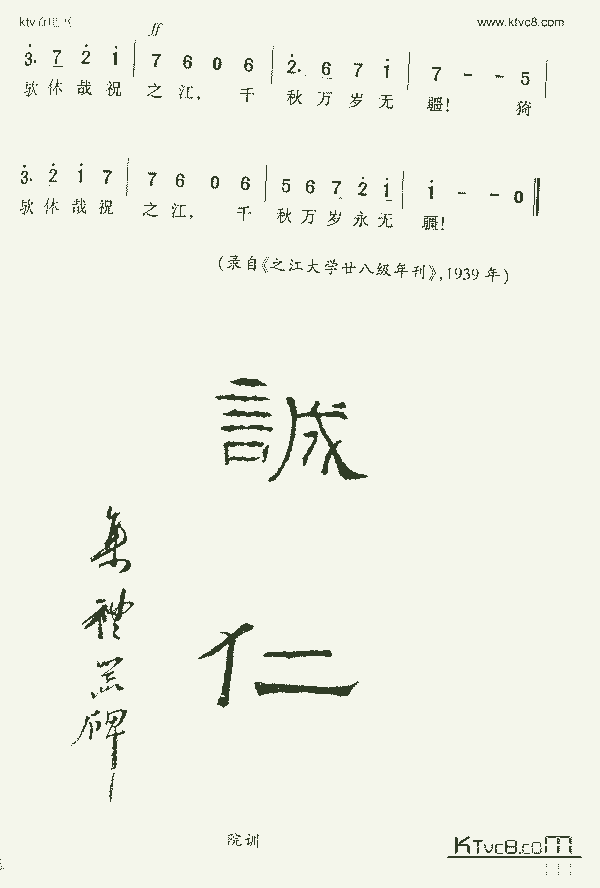 www.ktvc8.com
ff
3. 7 2 1 | 7 6 0 6 | 2. 6 7 1 | 7 - - 5 |
欤休哉祝 之江， 千 秋万岁无 疆！ 猗
3. 2 1 7 | 7 6 0 6 | 5 6 7 2 1 | 1 - - 0 ‖
欤休哉祝 之江， 千 秋万岁永无 疆！
（录自《之江大学廿八级年刊》，1939年）
誠
仁
集禮器碑
院训
KTvc8.com